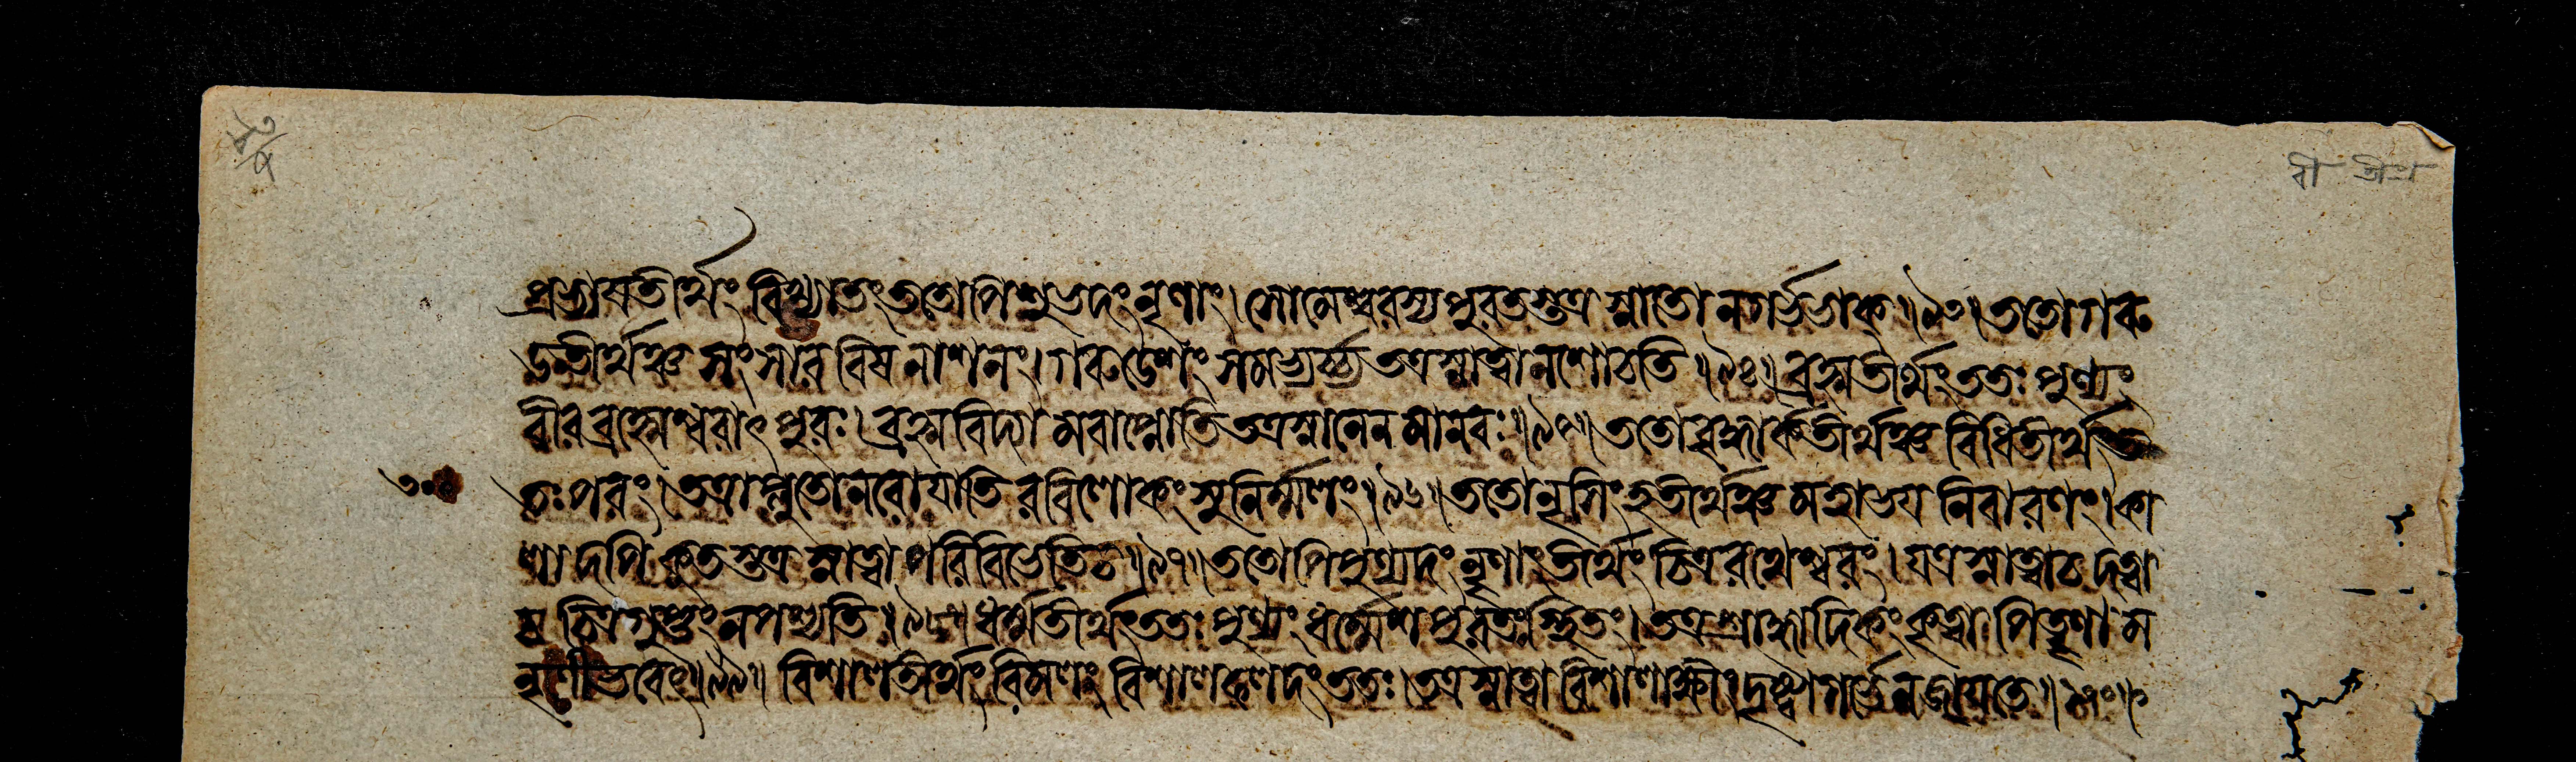 প্রভাসতীর্থং বিখ্যাতং ততোপি শুভদং নৃণাং। সোমেশ্বরস্য পুরতস্তত্র স্নাতো ন গর্ভভাক্॥৯৩॥ ততো গরু
ড়তীর্থঞ্চ সংসার বিষ নাশনং। গরুড়েশং সমভ্যর্চ্চ্য তত্র স্নাত্বা ন শোচতি॥৯৪॥ ব্রহ্মতীর্থং ততঃ পুণ্যং
বীর ব্রহ্মেশ্বরাৎ পুরঃ। ব্রহ্মবিদ্যামবাপ্নোতি তত্র স্নানেন মানবঃ॥৯৫॥ ততো বৃদ্ধার্কতীর্থঞ্চ বিধিতীর্থং ত
তঃ পরং। তত্রাপ্লুতো নরো যাতি রবিলোকং সুনির্ম্মলং॥৯৬॥ ততো নৃসিংহতীর্থঞ্চ মহাভয় নিবারণং। কা
লাদপি কুতস্তত্র স্নাত্বা পরিবিভেতি চ॥৯৭॥ ততোপি পুণ্যদং নৃণাং তীর্থং চিত্ররথেশ্বরং। যত্র স্নাত্বা চ দত্ত্বা
চ চিত্রগুপ্তং ন পশ্যতি॥৯৮॥ ধর্ম্মতীর্থং ততঃ পুণ্যং ধর্ম্মেশ পুরতঃ স্থিতং। তত্র শ্রাদ্ধাদিকং কৃত্বা পিতৄণাম
নৃণী ভবেৎ॥৯৯॥ বিশালতীর্থং বিমলং বিশালফলদং ততঃ। তত্র স্নাত্বা বিশালাক্ষীং দৃষ্ট্বা গর্ভে ন জায়তে॥১০০॥